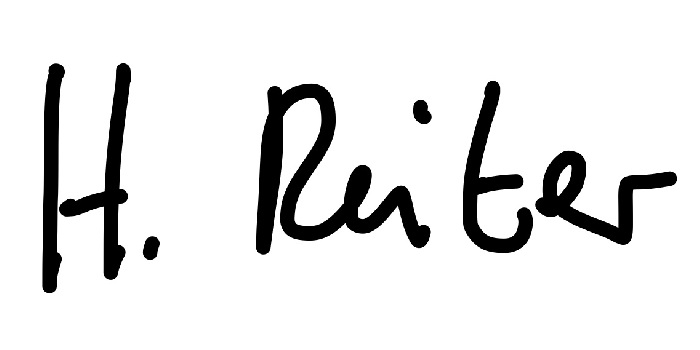 H. Reiter